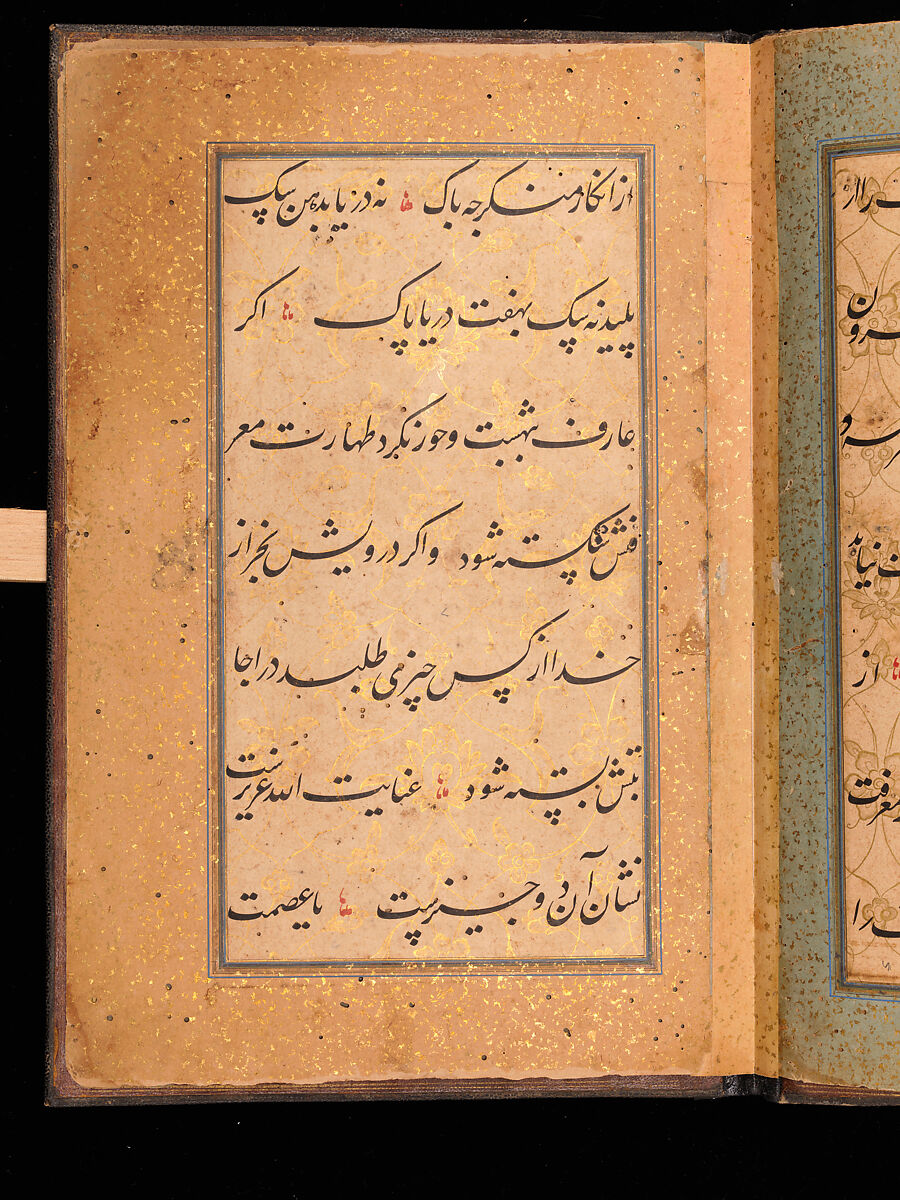 از انکار منکر چه باک نه دریا بدهن سک
پلید نه سک بهفت دریا پاک اکر
عارف ببهشت و حور نکرد طهارت معر
فتش شکسته شود و اکر درویش بجز از
خدا از کس چیزی طلبد در اجا
بتش بسته شود عنایت الله عزیزست
نشان آن دو چیزست یا عصمت